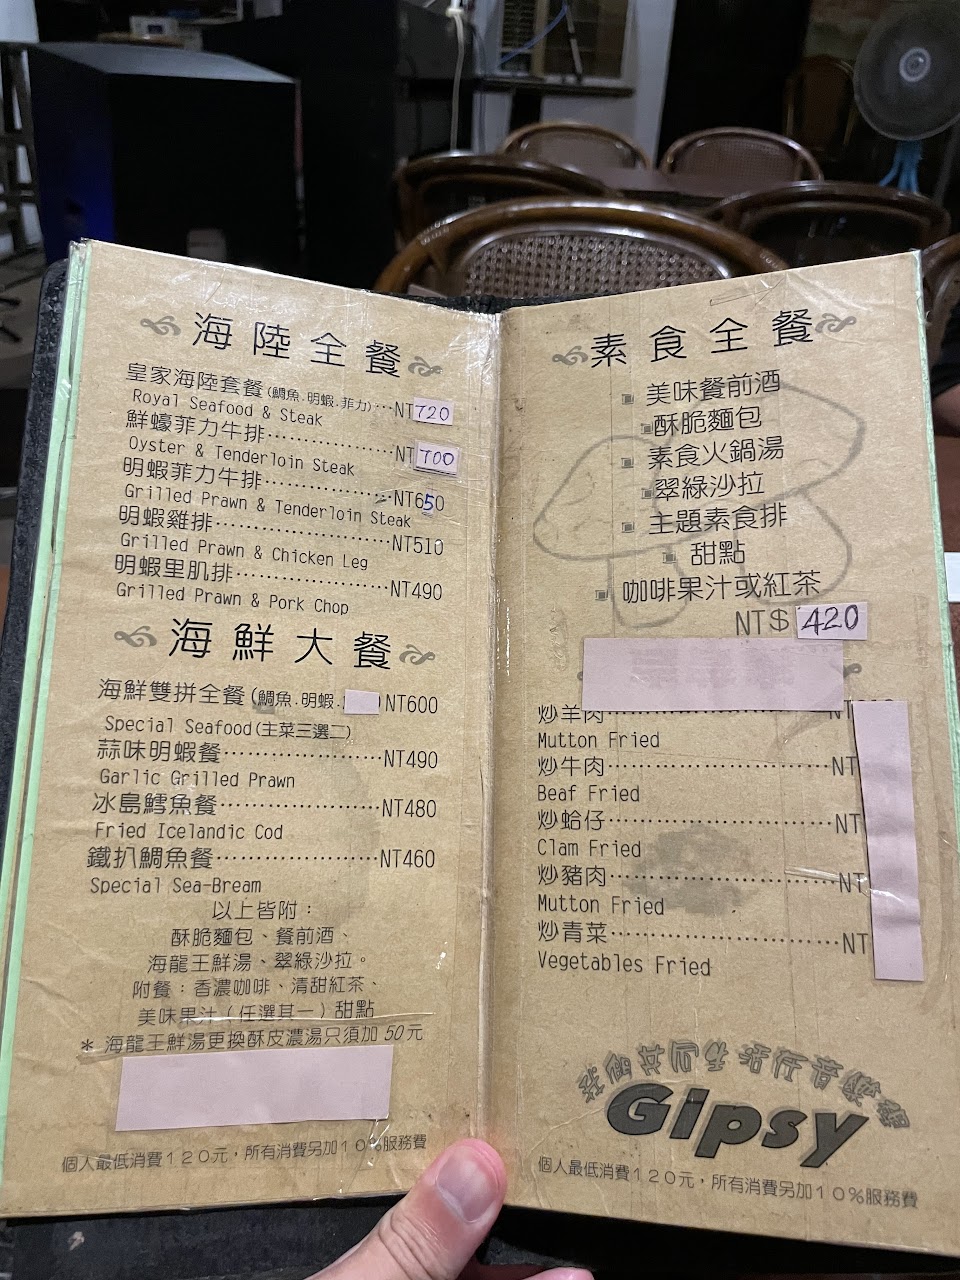 海陸全餐
皇家海陸套餐(鯛魚.明蝦.菲力)…NT720
Royal Seafood & Steak
鮮蠔菲力牛排………………NT700
Oyster & Tenderloin Steak
明蝦菲力牛排………………NT650
Grilled Prawn & Tenderloin Steak
明蝦雞排………………………NT510
Grilled Prawn & Chicken Leg
明蝦里肌排……………………NT490
Grilled Prawn & Pork Chop
海鮮大餐
海鮮雙拼全餐(鯛魚.明蝦. NT600
Special Seafood(主菜三選二)
蒜味明蝦餐……………………NT490
Garlic Grilled Prawn
冰島鱈魚餐……………………NT480
Fried Icelandic Cod
鐵扒鯛魚餐……………………NT460
Special Sea-Bream
以上皆附：
酥脆麵包、餐前酒、
海龍王鮮湯、翠綠沙拉。
附餐：香濃咖啡、清甜紅茶、
美味果汁（任選其一）甜點
* 海龍王鮮湯更換酥皮濃湯只須加 50元
個人最低消費１２０元，所有消費另加１０％服務費
素食全餐
美味餐前酒
酥脆麵包
素食火鍋湯
翠綠沙拉
主題素食排
甜點
咖啡果汁或紅茶
NT$ 420
炒羊肉………………………NT
Mutton Fried
炒牛肉………………………NT
Beaf Fried
炒蛤仔………………………NT
Clam Fried
炒豬肉………………………NT
Mutton Fried
炒青菜………………………NT
Vegetables Fried
Gipsy
個人最低消費１２０元，所有消費另加１０％服務費